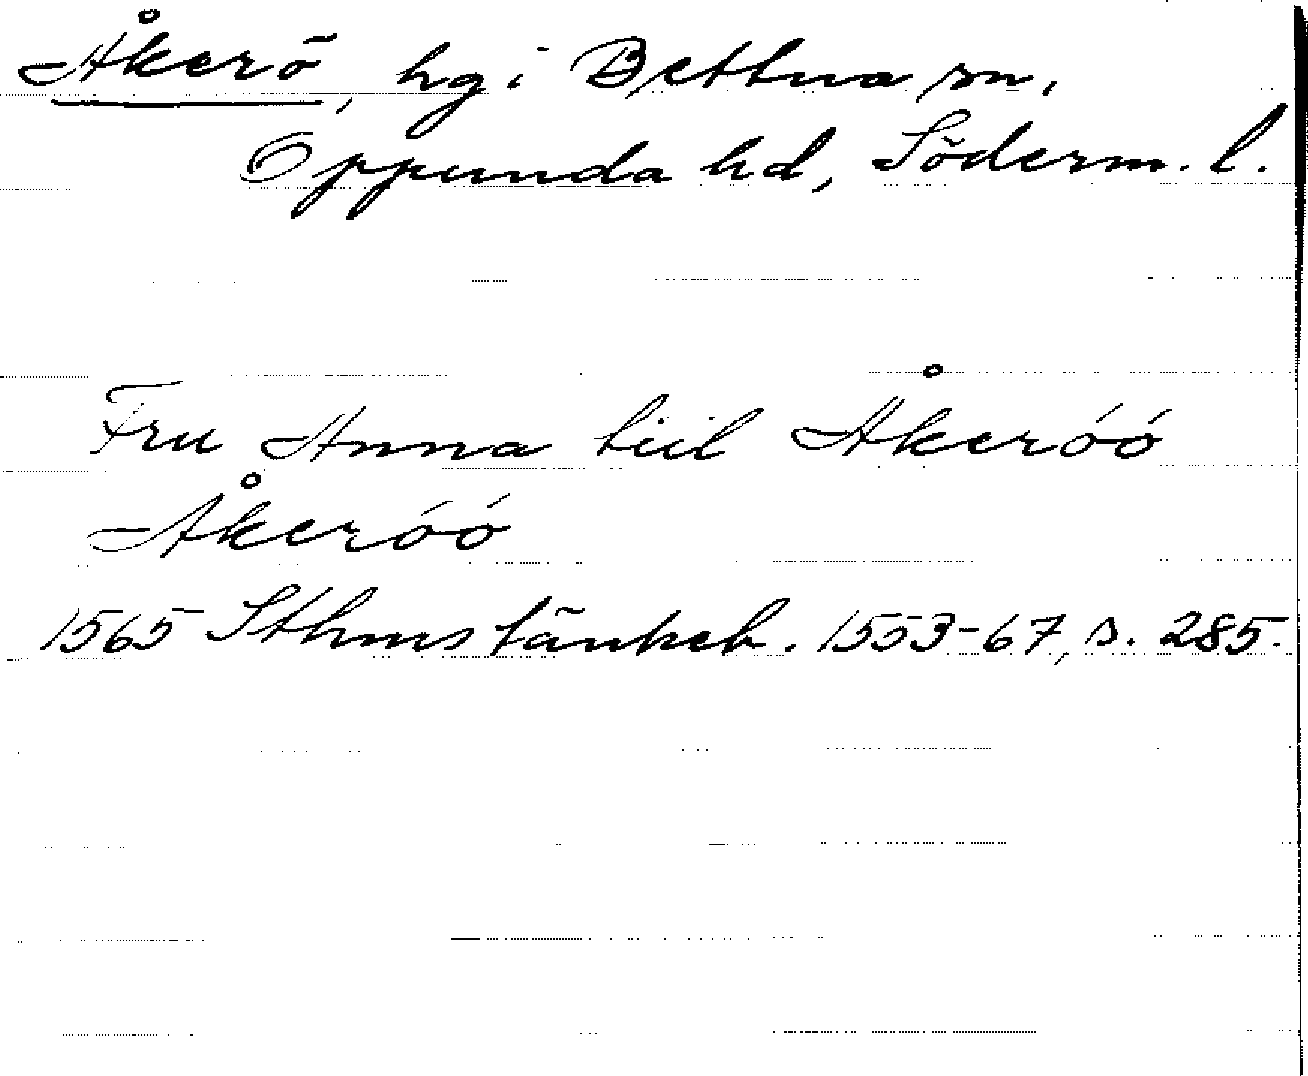 Åkerö, hg i Bettna sn,
Oppunda hd, Söderm. l.
Fru Anna tiil Åkeróó
Åkeróó
1565 Sthms tänkeb. 1553-67, s. 285.